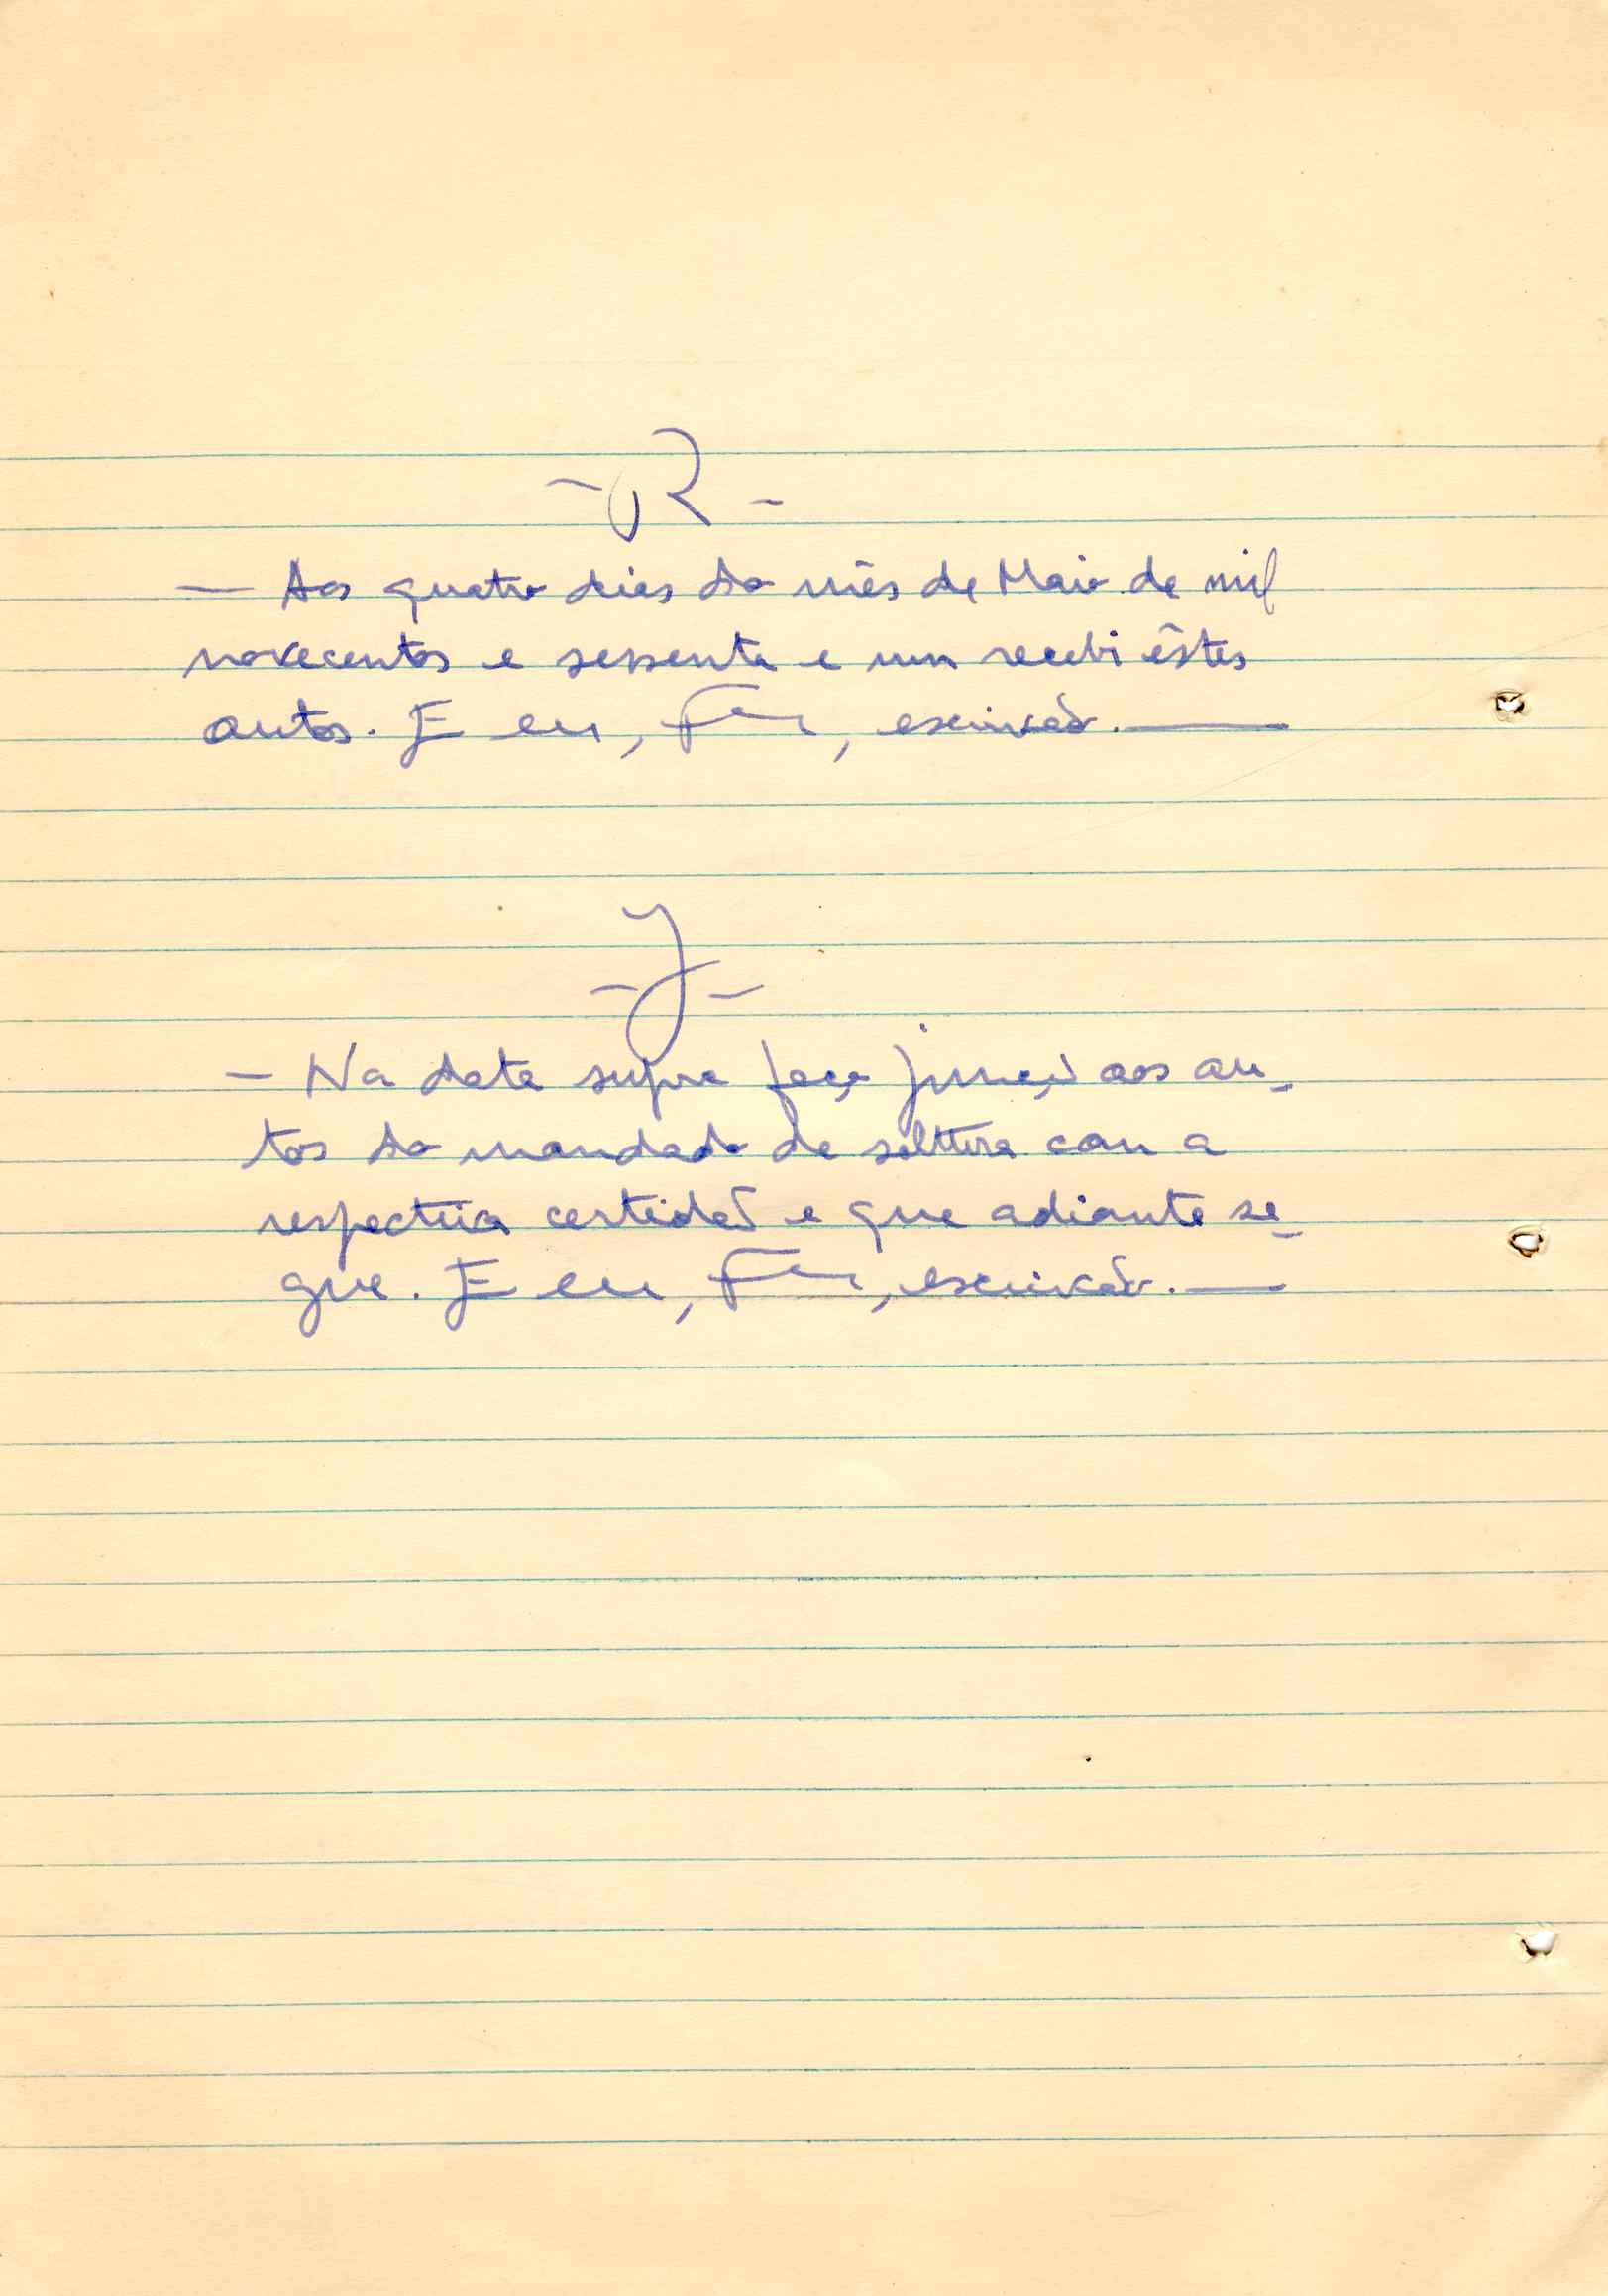 - R -
— Aos quatro dias do mês de Maio de mil
novecentos e sessenta e um recebi êstes
autos. E eu, , escrivão. —
- J -
— Na data supra faço junção aos au-
tos do mandado de soltura com a
respectiva certidão e que adiante se-
gue. E eu, , escrivão. —